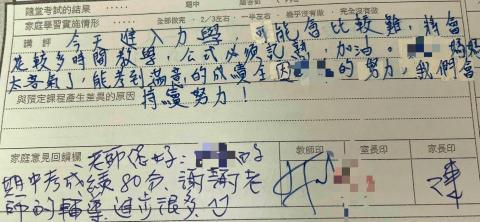 隨堂考試的結果
家庭學習實施情形 全部做完 2/3左右 一半左右 幾乎沒有做 完全沒有做
講評 今天進入力學 可能會比較難,將會
花較多時間教學,公式必須記熟,加油。媽媽
太客氣了,能考到滿意的成績全因 的努力,我們會
與預定課程產生差異的原因 持續努力!
家庭意見回饋欄 老師您好:
教師印 室長印 家長印
期中考成績80分,謝謝老
師的輔導 進步很多
陳